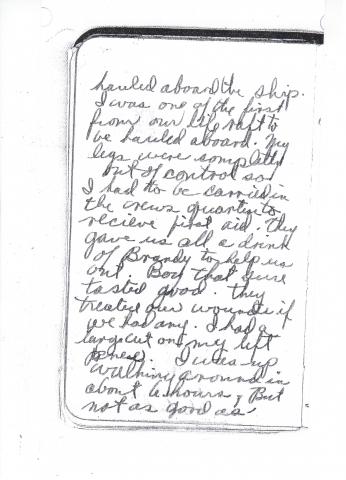 hauled aboard the ship.
I was one of the first
from our life raft to
be hauled aboard. My
legs were completly
out of control so
I had to be carried in
the crews quarters to
recieve first aid. They
gave us all a drink
of Brandy to help us
out. Boy that sure
tasted good. they
treated our wounds if
we had any. I had a
large cut on my left
knee. I was up
walking around in
about 6 hours, But
not as good as